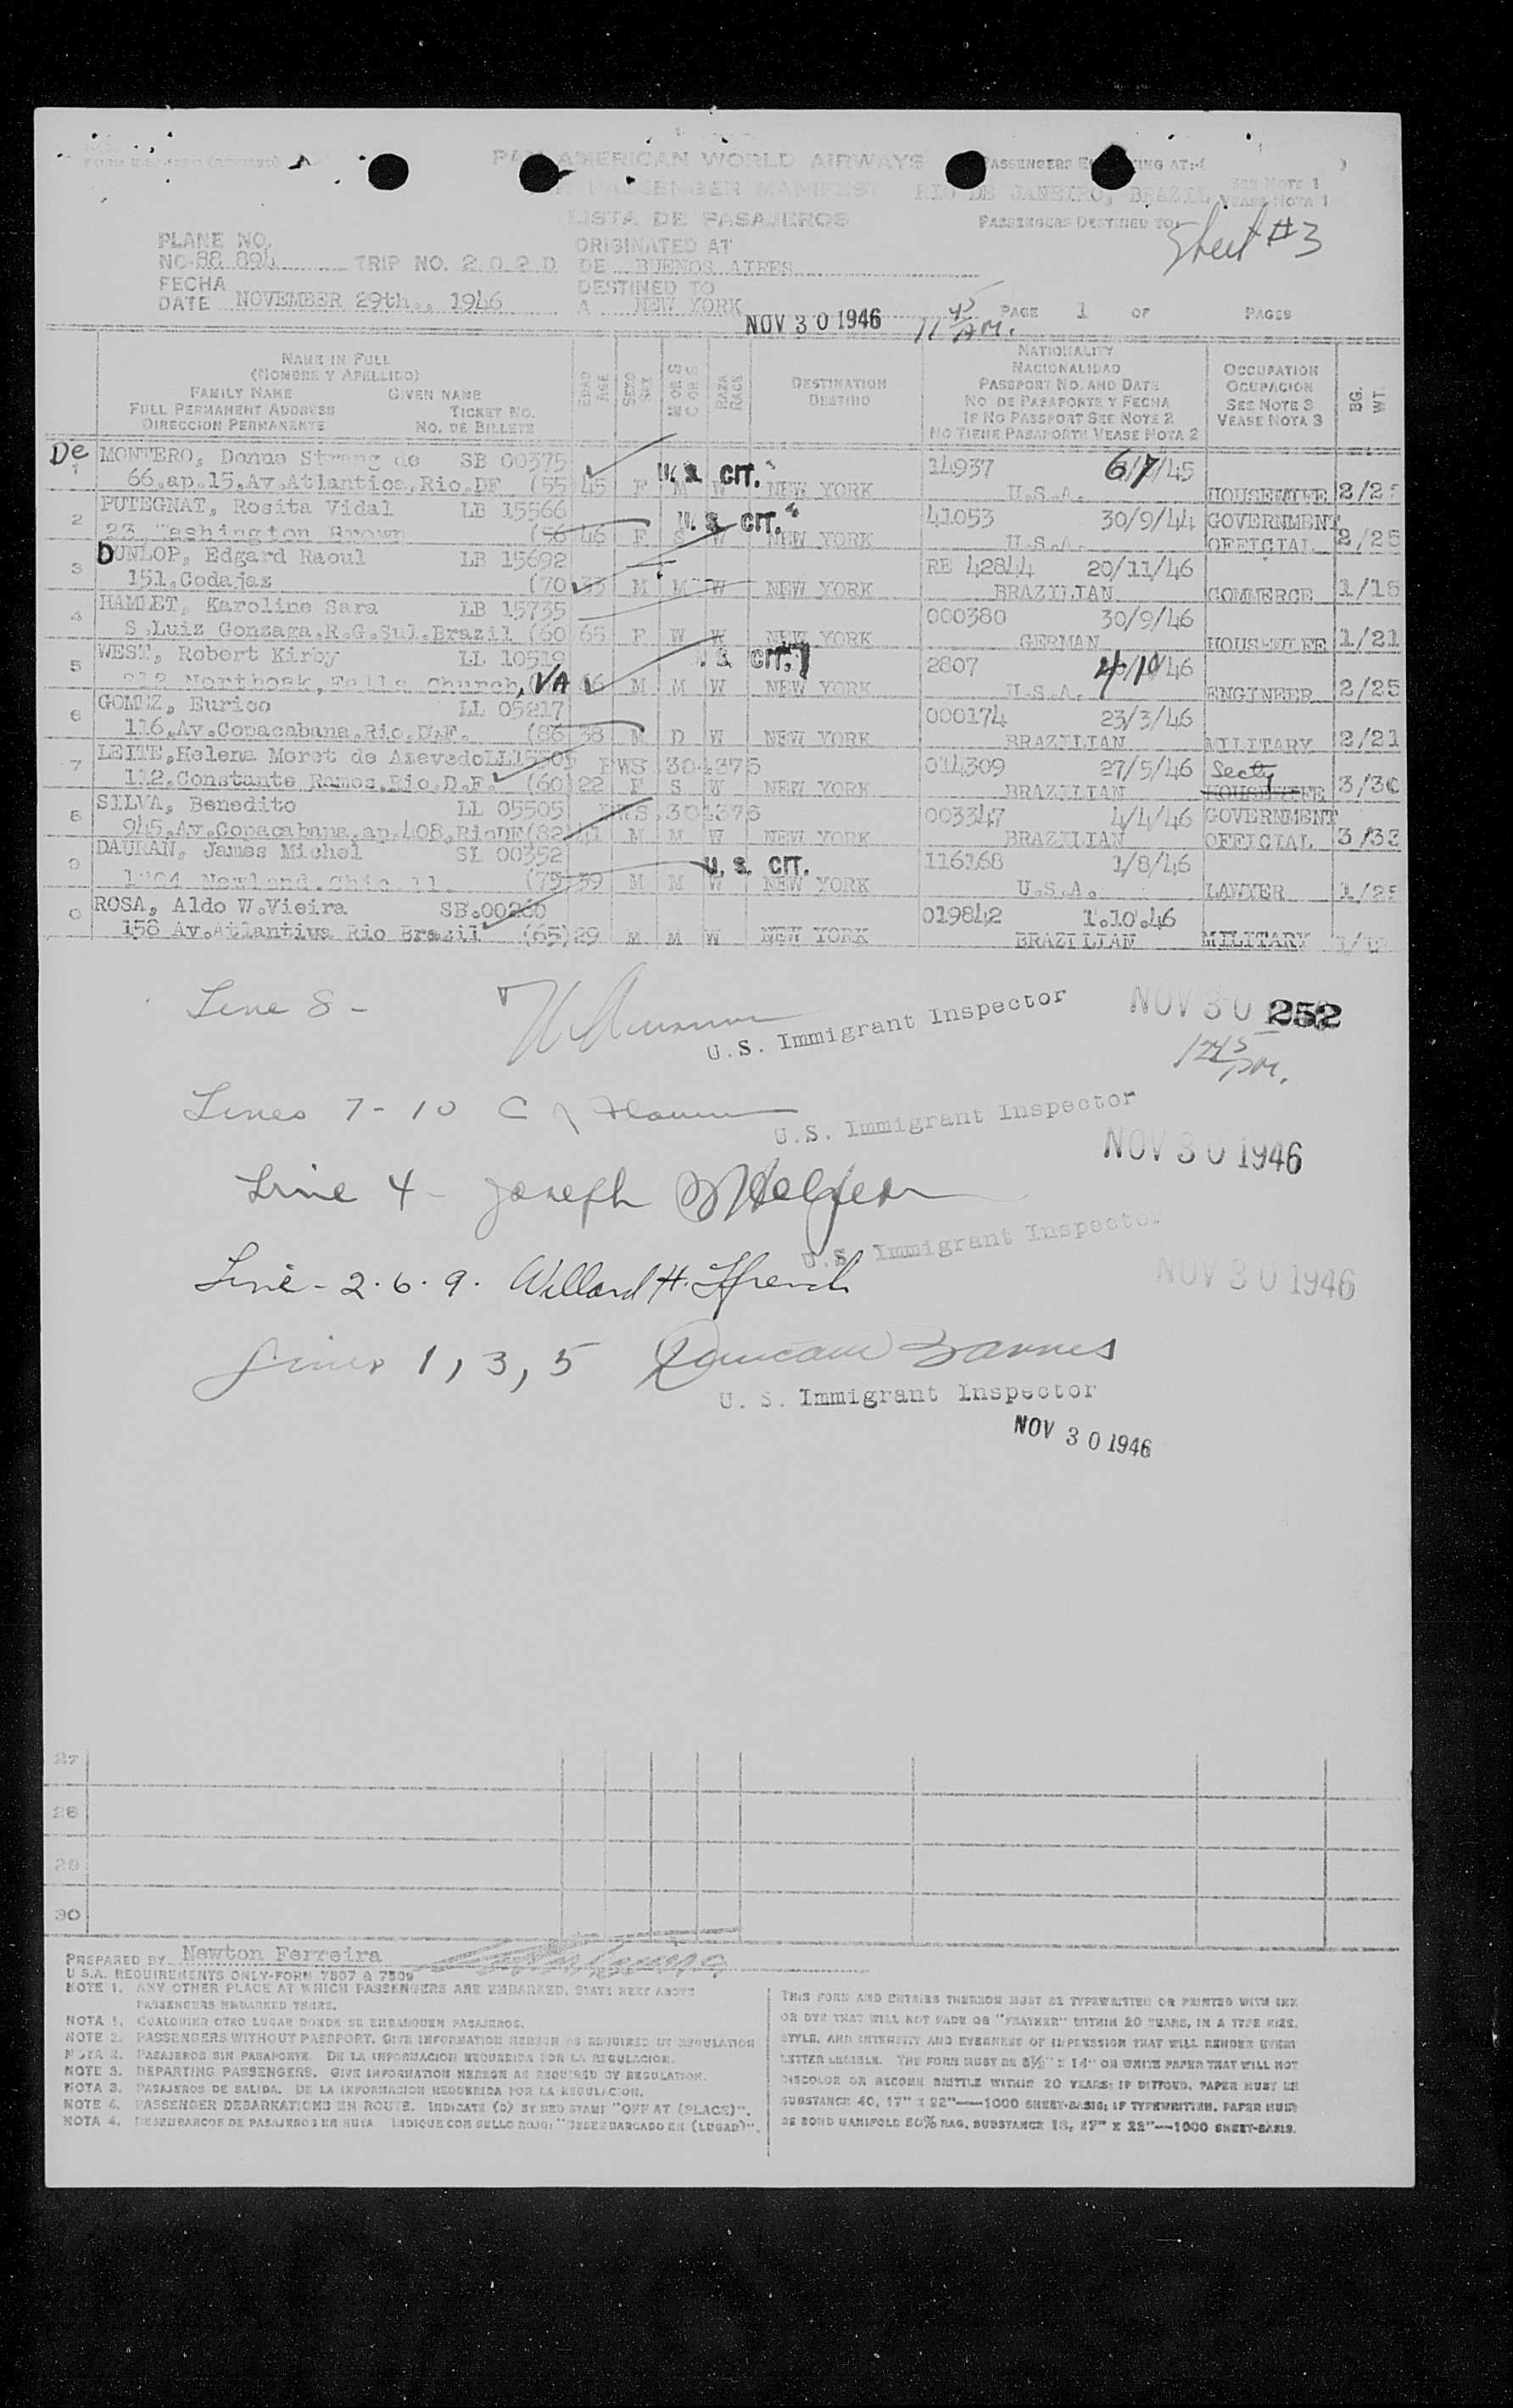 PAN AMERICAN WORLD AIRWAYS
PASSENGER MANIFEST
LISTA DE PASAJEROS
RIO DE JANEIRO, BRAZIL
SEE NOTE 1
VEASE NOTA 1
PASSENGERS DESTINED TO
Sheet #3
PLANE NO.
NC-88 894 TRIP NO. 2 0 2 D
ORIGINATED AT
DE BUENOS AIRES
FECHA
DATE NOVEMBER 29th., 1946
DESTINED TO
A NEW YORK
NOV 30 1946
11 45 AM.
PAGE 1 OF PAGES
NAME IN FULL
(NOMBRE Y APELLIDO)
FAMILY NAME GIVEN NAME
FULL PERMANENT ADDRESS TICKET NO.
DIRECCION PERMANENTE NO. DE BILLETE
EDAD AGE
SEXO SEX
M OR S
C OR S
RAZA RACE
DESTINATION
DESTINO
NATIONALITY
NACIONALIDAD
PASSPORT NO. AND DATE
NO DE PASAPORTE Y FECHA
IF NO PASSPORT SEE NOTE 2
NO TIENE PASAPORTE VEASE NOTA 2
OCCUPATION
OCUPACION
SEE NOTE 3
VEASE NOTA 3
BG. WT.
De
1 MONTERO, Donna Strang de SB 00375 U.S. CIT. 14937 6/7/45
66,ap.15,Av.Atlantica,Rio.DF (55 45 F M W NEW YORK U.S.A. HOUSEWIFE
2 PUTEGNAT, Rosita Vidal LB 15566 U.S. CIT. 41053 30/9/44 GOVERNMENT
23, Washington Brown (56 46 F S W NEW YORK U.S.A. OFFICIAL 2/25
3 DUNLOP, Edgard Raoul LB 15692 RE 42844 20/11/46
151,Codajaz (70 33 M M W NEW YORK BRAZILIAN COMMERCE
4 HAMLET, Karoline Sara LB 15735 000380 30/9/46
S.Luiz Gonzaga,R.G.Sul.Brazil (60 65 F W W NEW YORK GERMAN HOUSEWIFE 1/21
5 WEST, Robert Kirby LL 10519 CIT. 2807 /10/46
Falls Church, VA M M W NEW YORK U.S.A. ENGINEER 2/25
6 GOMEZ, Eurico LL 05217 000174 23/3/46
116,Av.Copacabana,Rio,D.F. (86 38 M D W NEW YORK BRAZILIAN MILITARY 2/21
7 LEITE,Helena Moret de Azevedo PWS 304375 014309 27/5/46 Secty
112,Constante Ramos,Rio,D.F. (60) 22 F S W NEW YORK BRAZILIAN HOUSEWIFE 3/30
8 SILVA, Benedito LL 05505 PWS 304376 003347 4/4/46 GOVERNMENT
945,Av.Copacabana,ap.408,RioDF(82) 41 M M W NEW YORK BRAZILIAN OFFICIAL
9 DAURAN, James Michel SL 00352 U.S. CIT. 116168 1/8/46
(75 39 M M W NEW YORK U.S.A. LAWYER
ROSA, Aldo W.Vieira 019842 1.10.46
158 Av.Atlantiva Rio Brazil (65) 29 M M W NEW YORK BRAZILIAN MILITARY
Line 8 -
U.S. Immigrant Inspector
NOV 30
252
1245 PM.
Lines 7 - 10
U.S. Immigrant Inspector
NOV 30 1946
Line 4 - Joseph
U.S. Immigrant Inspector
Line - 2.6.9. Willard H. Ffrench
NOV 30 1946
Lines 1, 3, 5 Duncan Barnes
U. S. Immigrant Inspector
NOV 30 1946
27
28
29
30
PREPARED BY Newton Ferreira
U S.A. REQUIREMENTS ONLY-FORM 7507 & 7509
NOTE 1. ANY OTHER PLACE AT WHICH PASSENGERS ARE EMBARKED, STATE NEXT ABOVE
PASSENGERS EMBARKED THERE.
NOTA 1. CUALQUIER OTRO LUGAR DONDE SE EMBARQUEN PASAJEROS.
NOTE 2. PASSENGERS WITHOUT PASSPORT. GIVE INFORMATION HEREON AS REQUIRED BY REGULATION
NOTA 2. PASAJEROS SIN PASAPORTE. DE LA INFORMACION REQUERIDA POR LA REGULACION.
NOTE 3. DEPARTING PASSENGERS. GIVE INFORMATION HEREON AS REQUIRED BY REGULATION.
NOTA 3. PASAJEROS DE SALIDA. DE LA INFORMACION REQUERIDA POR LA REGULACION.
NOTE 4. PASSENGER DEBARKATIONS EN ROUTE. INDICATE (D) BY RED STAMP "OFF AT (PLACE)".
NOTA 4. DESEMBARCOS DE PASAJEROS EN RUTA. INDIQUE CON SELLO ROJO: "DESEMBARCADO EN (LUGAR)".
THIS FORM AND ENTRIES THEREON MUST BE TYPEWRITTEN OR PRINTED WITH INK
OR DYE THAT WILL NOT FADE OR "FEATHER" WITHIN 20 YEARS, IN A TYPE SIZE,
STYLE, AND INTENSITY AND EVENNESS OF IMPRESSION THAT WILL RENDER EVERY
LETTER LEGIBLE. THE FORM MUST BE 8½" X 14" ON WHITE PAPER THAT WILL NOT
DISCOLOR OR BECOME BRITTLE WITHIN 20 YEARS; IF DITTOED, PAPER MUST BE
SUBSTANCE 40, 17" X 22"—1000 SHEET-BASIS; IF TYPEWRITTEN, PAPER MUST
BE BOND MANIFOLD 50% RAG, SUBSTANCE 18, 17" X 22"—1000 SHEET-BASIS.